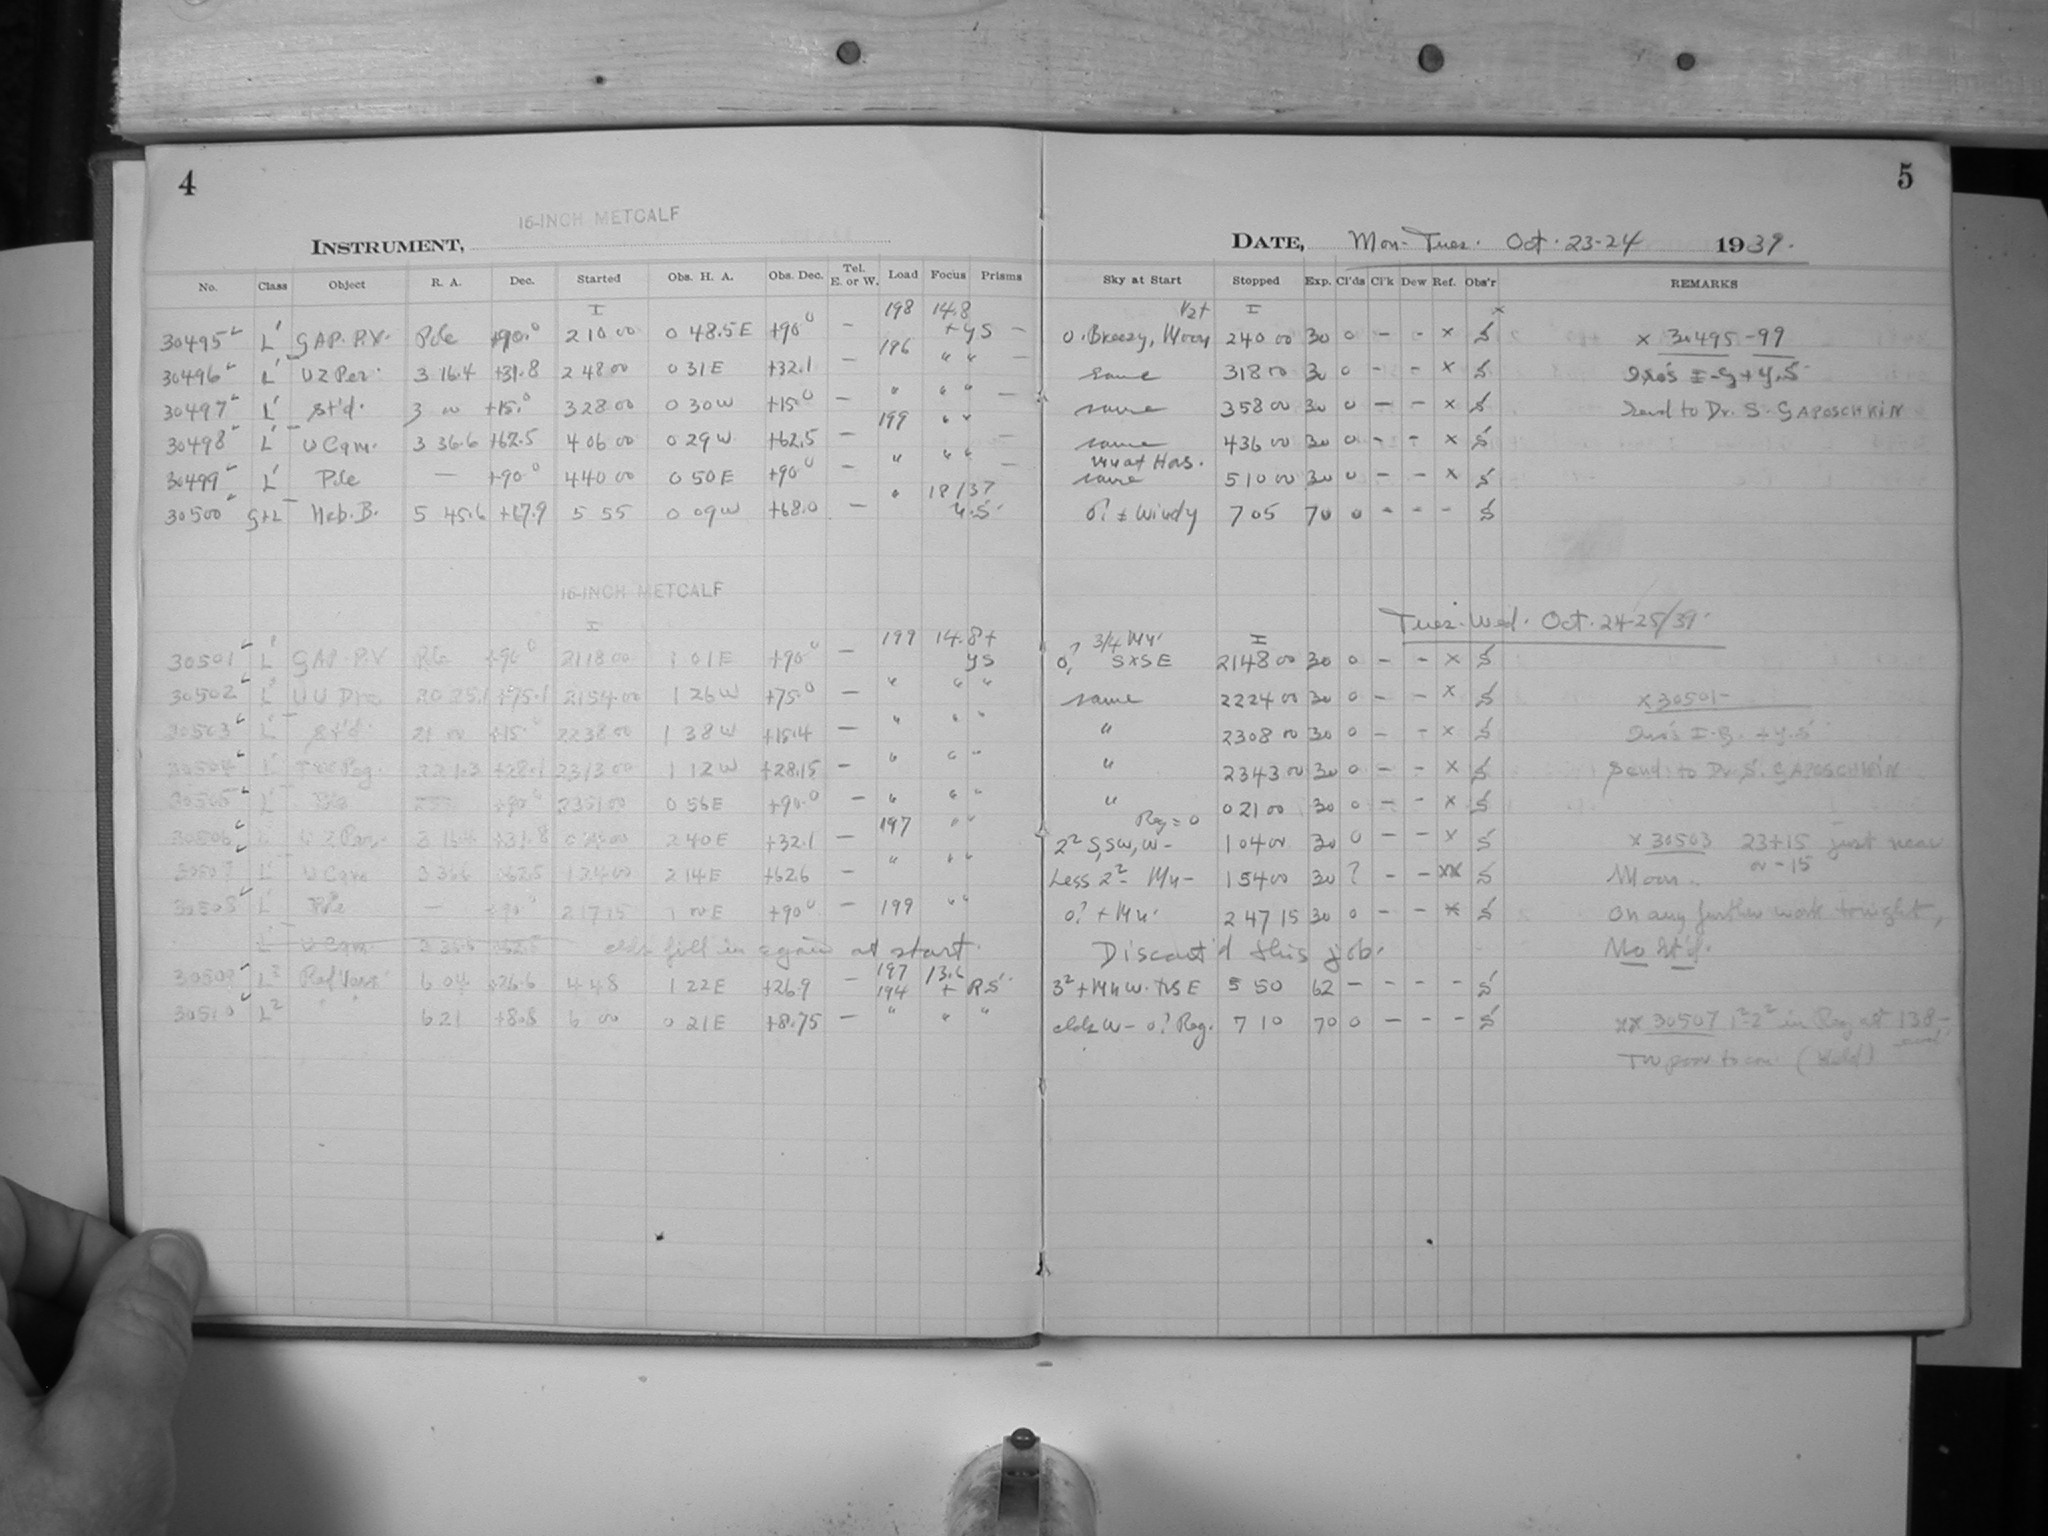 4
5
16-INCH METCALF
INSTRUMENT,
DATE, Mon-Tues. Oct. 23-24 1939.
No. Class Object R. A. Dec. Started Obs. H. A. Obs. Dec. Tel. E. or W. Load Focus Prisms Sky at Start Stopped Exp. Cl'ds Cl'k Dew Ref. Obs'r REMARKS
I 198 14.8 1/2+ I x
30495 L' GAP. P.V. Pole +90.° 2 10 00 0 48.5 E +90° - + YS - 0. Breezy, Moon 2 40 00 30 0 - - x S x 30495-99
196
30496 L' UZ Per. 3 16.4 +31.8 2 48 00 0 31 E +32.1 - " " - same 3 18 00 30 0 - - x S I-G + Y.S.
30497 L' St'd. 3 00 +15.° 3 28 00 0 30 W +15° - " " " - same 3 58 00 30 0 - - x S Send to Dr. S. GAPOSCHKIN
199
30498 L' U Cam. 3 36.6 +62.5 4 06 00 0 29 W +62.5 - " " - same 4 36 00 30 0 - - x S
30499 L' Pole - +90° 4 40 00 0 50 E +90° - " " " - same 5 10 00 30 0 - - x S
Mn at Hor.
30500 G+L Neb. B. 5 45.6 +67.9 5 55 0 09 W +68.0 - " 18/37 Y.S. 0? + Windy 7 05 70 0 - - - S
16-INCH METCALF
Tues-Wed. Oct. 24-25/39.
I 199 14.8+ 3/4 Mn. I
30501 L' GAP. P.V Pole +90° 21 18 00 1 01 E +90° - YS 0? SxSE 21 48 00 30 0 - - x S
30502 L' UU Dra. 20 25.1 +75.1 21 54 00 1 26 W +75.° - " " " same 22 24 00 30 0 - - x S x 30501-
30503 L' St'd. 21 00 +15.° 22 38 00 1 38 W +15.4 - " " " " 23 08 00 30 0 - - x S I-G. + Y.S
30504 L' Peg. 22 1.3 +28.1 23 13 00 1 12 W +28.15 - " " " " 23 43 00 30 0 - - x S Send to Dr. S. GAPOSCHKIN
30505 L' Pole +90° 23 51 00 0 56 E +90.° - " " " " 0 21 00 30 0 - - x S
197 Reg = 0
30506 L' UZ Per. 3 16.4 +31.8 0 34 00 2 40 E +32.1 - " " 2² S, SW, W - 1 04 00 30 0 - - x S x 30503 23+15 just near
30507 L' U Cam 3 36.6 +62.5 1 24 00 2 14 E +62.6 - " " " Less 2² - Mn - 1 54 00 30 ? - - xx S Moon. or -15
30508 L' Pole - +90° 2 17 15 1 00 E +90° - 199 " " 0? + Mn. 2 47 15 30 0 - - x S On any further work tonight,
L' U Cam 3 36.6 +62.5 clds fill in again at start. Discont'd this job. No St'd.
197 13.6
30509 L² Red Vars 6 04 +26.6 4 48 1 22 E +26.9 - 194 + RS. 3² + Mn W. 5 50 62 - - - - S
30510 L² " " 6 21 +8.8 6 00 0 21 E +8.75 - " " " clds W - 0? Reg. 7 10 70 0 - - - S xx 30507 1²-2² in Reg at 138,-
TW poor to (Held)